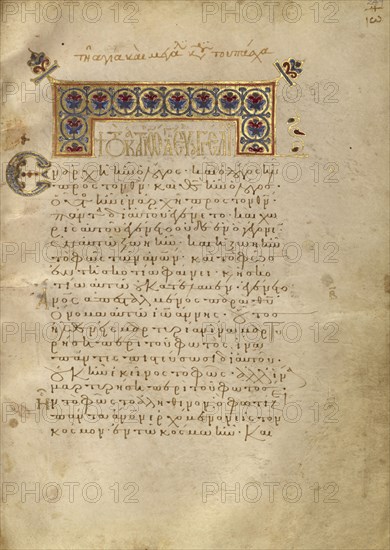 τῇ ἁγίᾳ καὶ μεγάλ κυ τοῦ πάσχα
ΕΚ ΤΟΥ ΚΑΤΑ ΙΩ ΕΥΑΓΓΕΛΙ
Ἐν ἀρχῇ ἦν ὁ λόγος· καὶ ὁ λόγος ἦν
πρὸς τὸν θν· καὶ θς ἦν ὁ λόγος·
οὗτος ἦν ἐν ἀρχῇ πρὸς τὸν θν·
πάντα δι' αὐτοῦ ἐγένετο· καὶ χω
ρὶς αὐτοῦ ἐγένετο οὐδὲ ἓν ὃ γέγονεν·
ἐν αὐτῷ ζωὴ ἦν· καὶ ἡ ζωὴ ἦν
τὸ φῶς τῶν ἀνων· καὶ τὸ φῶς
ἐν τῇ σκοτίᾳ φαίνει· καὶ ἡ σκο
τία αὐτὸ οὐ κατέλαβεν· ἐγένετο
ἄνος ἀπεσταλμένος παρὰ θυ
ὄνομα αὐτῷ ἰωάννης· οὗτος
ἦλθεν εἰς μαρτυρίαν ἵνα μαρτυ
ρήσῃ περὶ τοῦ φωτός, ἵνα
πάντες πιστεύσωσι δι' αὐτοῦ·
οὐκ ἦν ἐκεῖνος τὸ φῶς· ἀλλ' ἵνα
μαρτυρήσῃ περὶ τοῦ φωτός·
Ἦν τὸ φῶς τὸ ἀληθινόν· ὃ φωτίζει
πάντα ἄνον ἐρχόμενον εἰς τὸν
κόσμον· ἐν τῷ κόσμῳ ἦν· καὶ
PHOTO 12